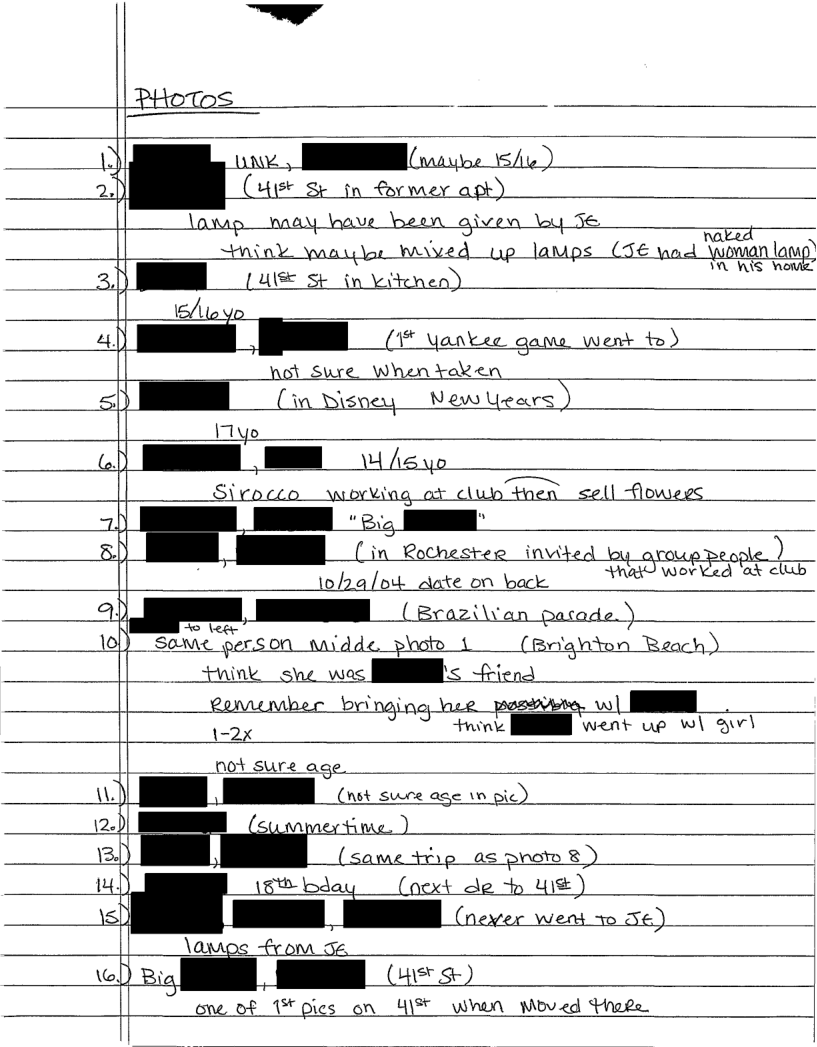 PHOTOS
1.) UNK, (maybe 15/16)
2.) (41st St in former apt)
lamp may have been given by JE
think maybe mixed up lamps (JE had naked woman lamp) in his home
3.) (41st St in kitchen)
15/16 yo
4.) , (1st Yankee game went to)
not sure when taken
5.) (in Disney New Years)
17 yo
6.) , 14/15 yo
Sirocco working at club then sell flowers
7.) , "Big "
8.) , (in Rochester invited by group people) that worked at club
10/29/04 date on back
9.) , (Brazilian parade)
to left
10) same person midde photo 1 (Brighton Beach)
think she was 's friend
Remember bringing her possibly w/ .
think went up w/ girl
1-2x
not sure age
11.) , (not sure age in pic)
12.) (summertime)
13.) , (same trip as photo 8)
14.) 18th bday (next dr to 41st)
15) , , (never went to JE)
lamps from JE
16.) Big , (41st St)
one of 1st pics on 41st when moved there